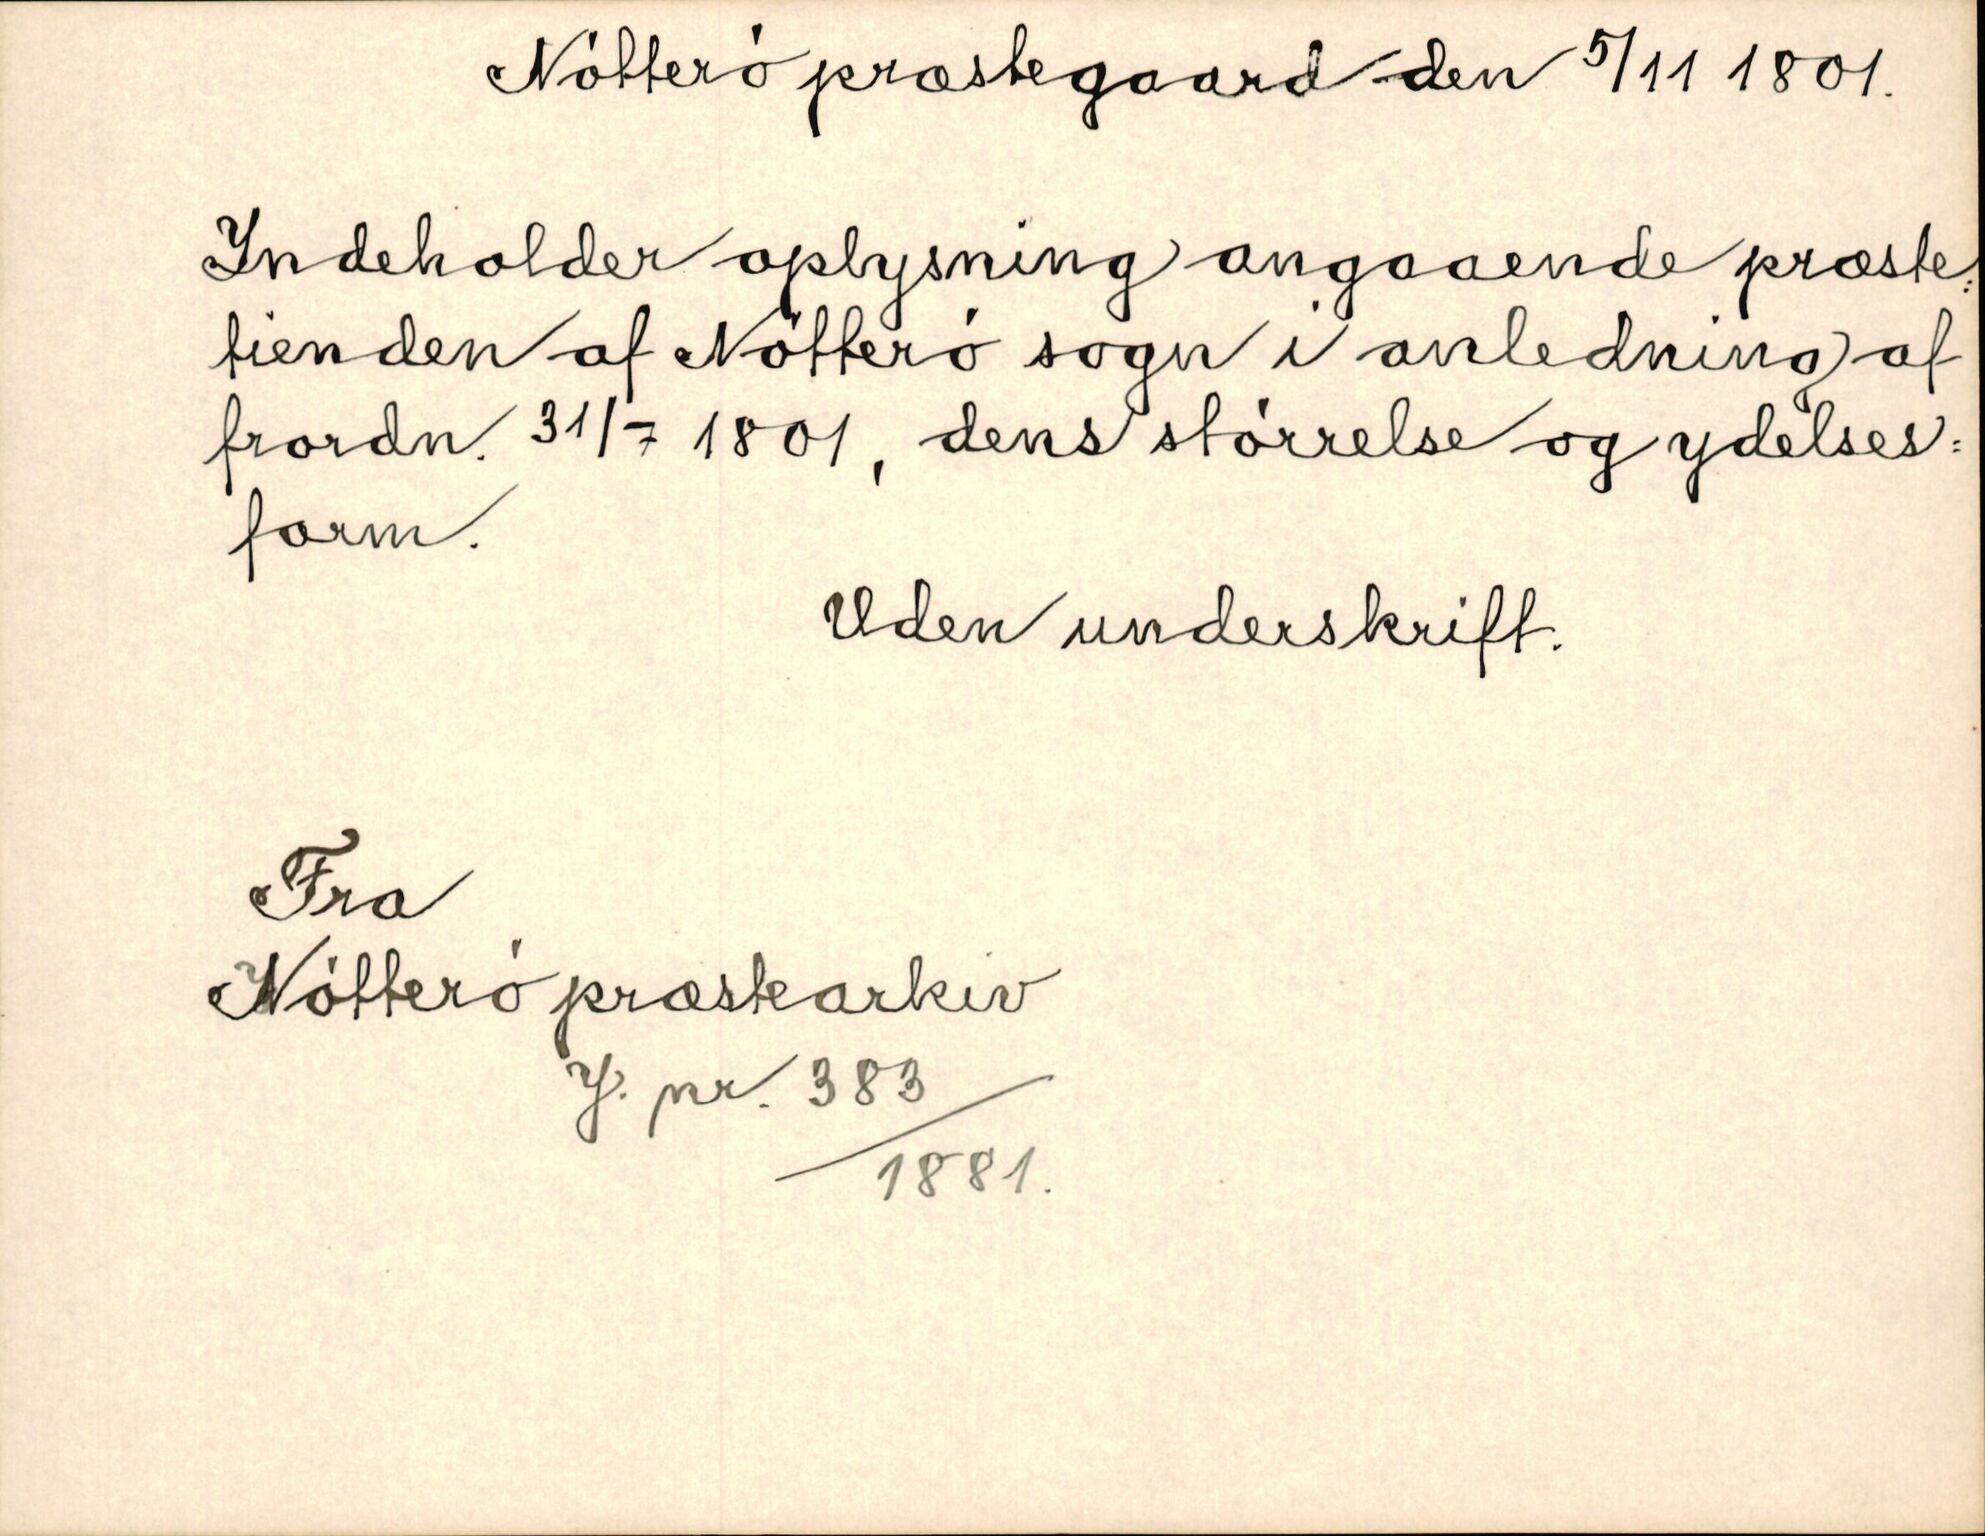 Nótteró præstegaard den 5/11 1801.
Indeholder oplysning angaaende præste:
tienden af Nótteró sogn i anledning af
frordn. 31/7 1801, dens stórrelse og ydelses:
form.
Uden underskrift.
Fra
Nótteró præstearkiv
J. nr. 383
1881.